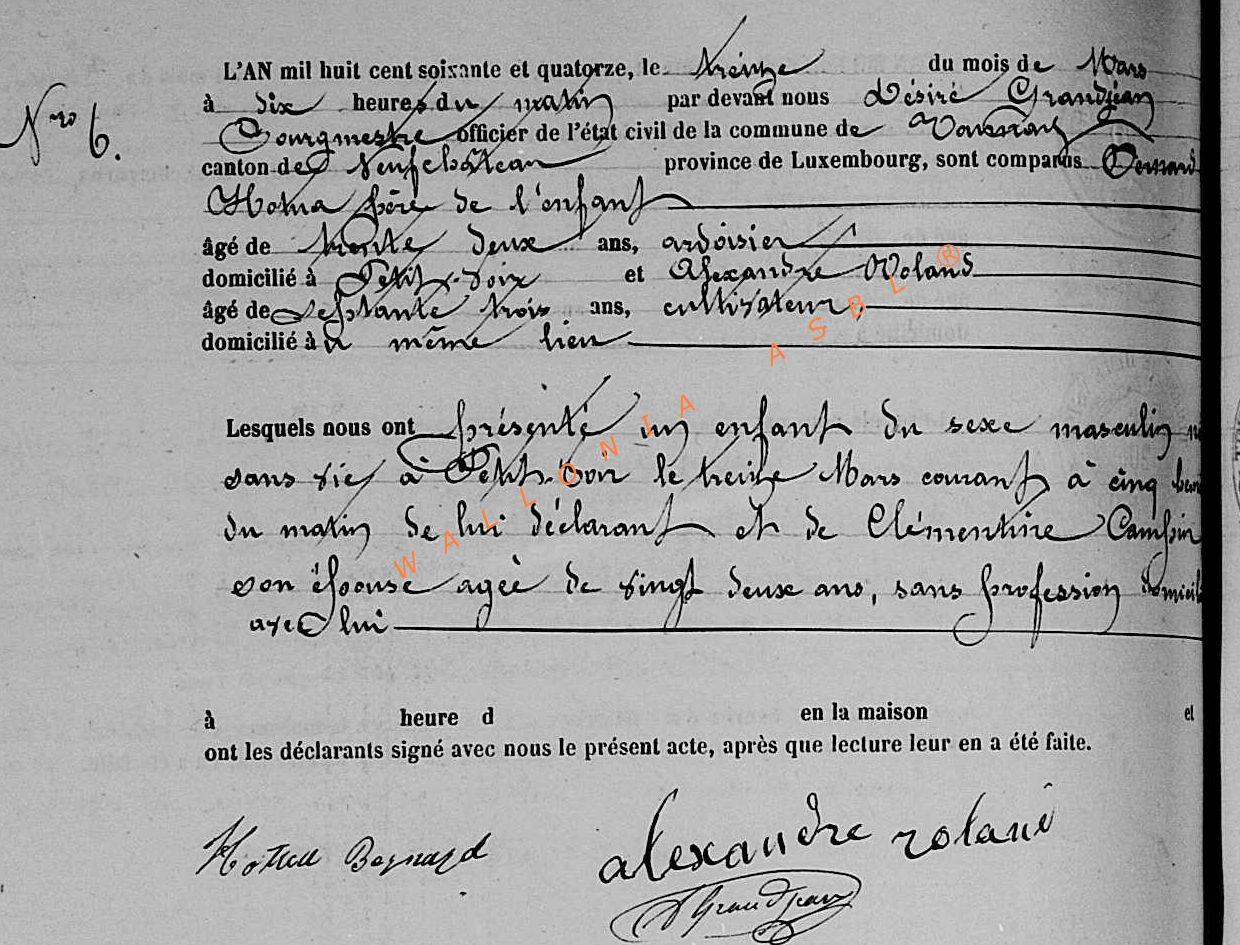 Nro 6.
L'AN mil huit cent soixante et quatorze, le treize du mois de Mars
à dix heures du matin par devant nous Désiré Grandjean
Bourgmestre officier de l'état civil de la commune de
canton de Neufchâteau province de Luxembourg, sont comparus Bernard
Hotua père de l'enfant
âgé de trente deux ans, ardoisier
domicilié à Petit-Voir et Alexandre Roland
âgé de septante trois ans, cultivateur,
domicilié à même lieu
Lesquels nous ont présenté un enfant du sexe masculin
sans vie à Petit-Voir le treize Mars courant à cinq
du matin de lui déclarant et de Clémentine
son épouse agée de vingt deux ans, sans profession
avec lui
à heure d en la maison et
ont les déclarants signé avec nous le présent acte, après que lecture leur en a été faite.
Bernard alexandre roland
Grandjean
WALLONIA ASBL ®